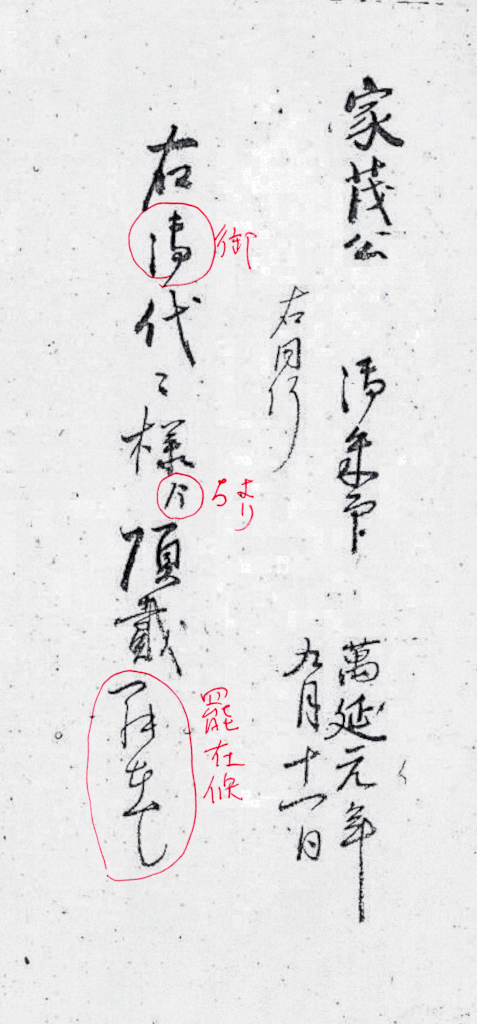 家茂公 御朱印 萬延元年
九月十一日
右同
右御代々様ゟ頂戴罷在候
御
ゟ より
罷在候